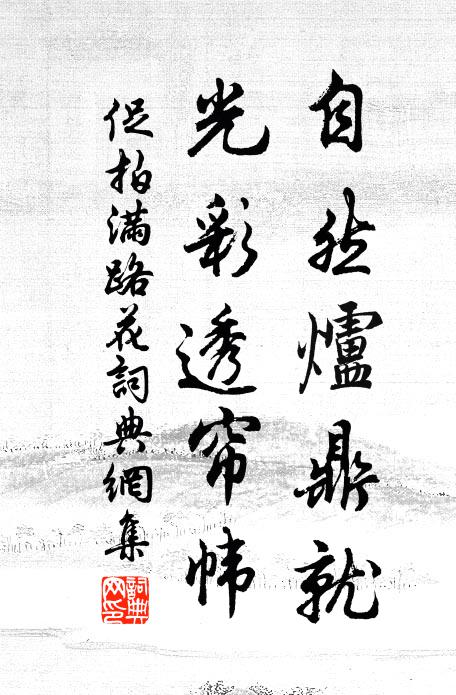 自然爐鼎就
光彩透帘幃
促拍滿路花詞典網集
詞典網印